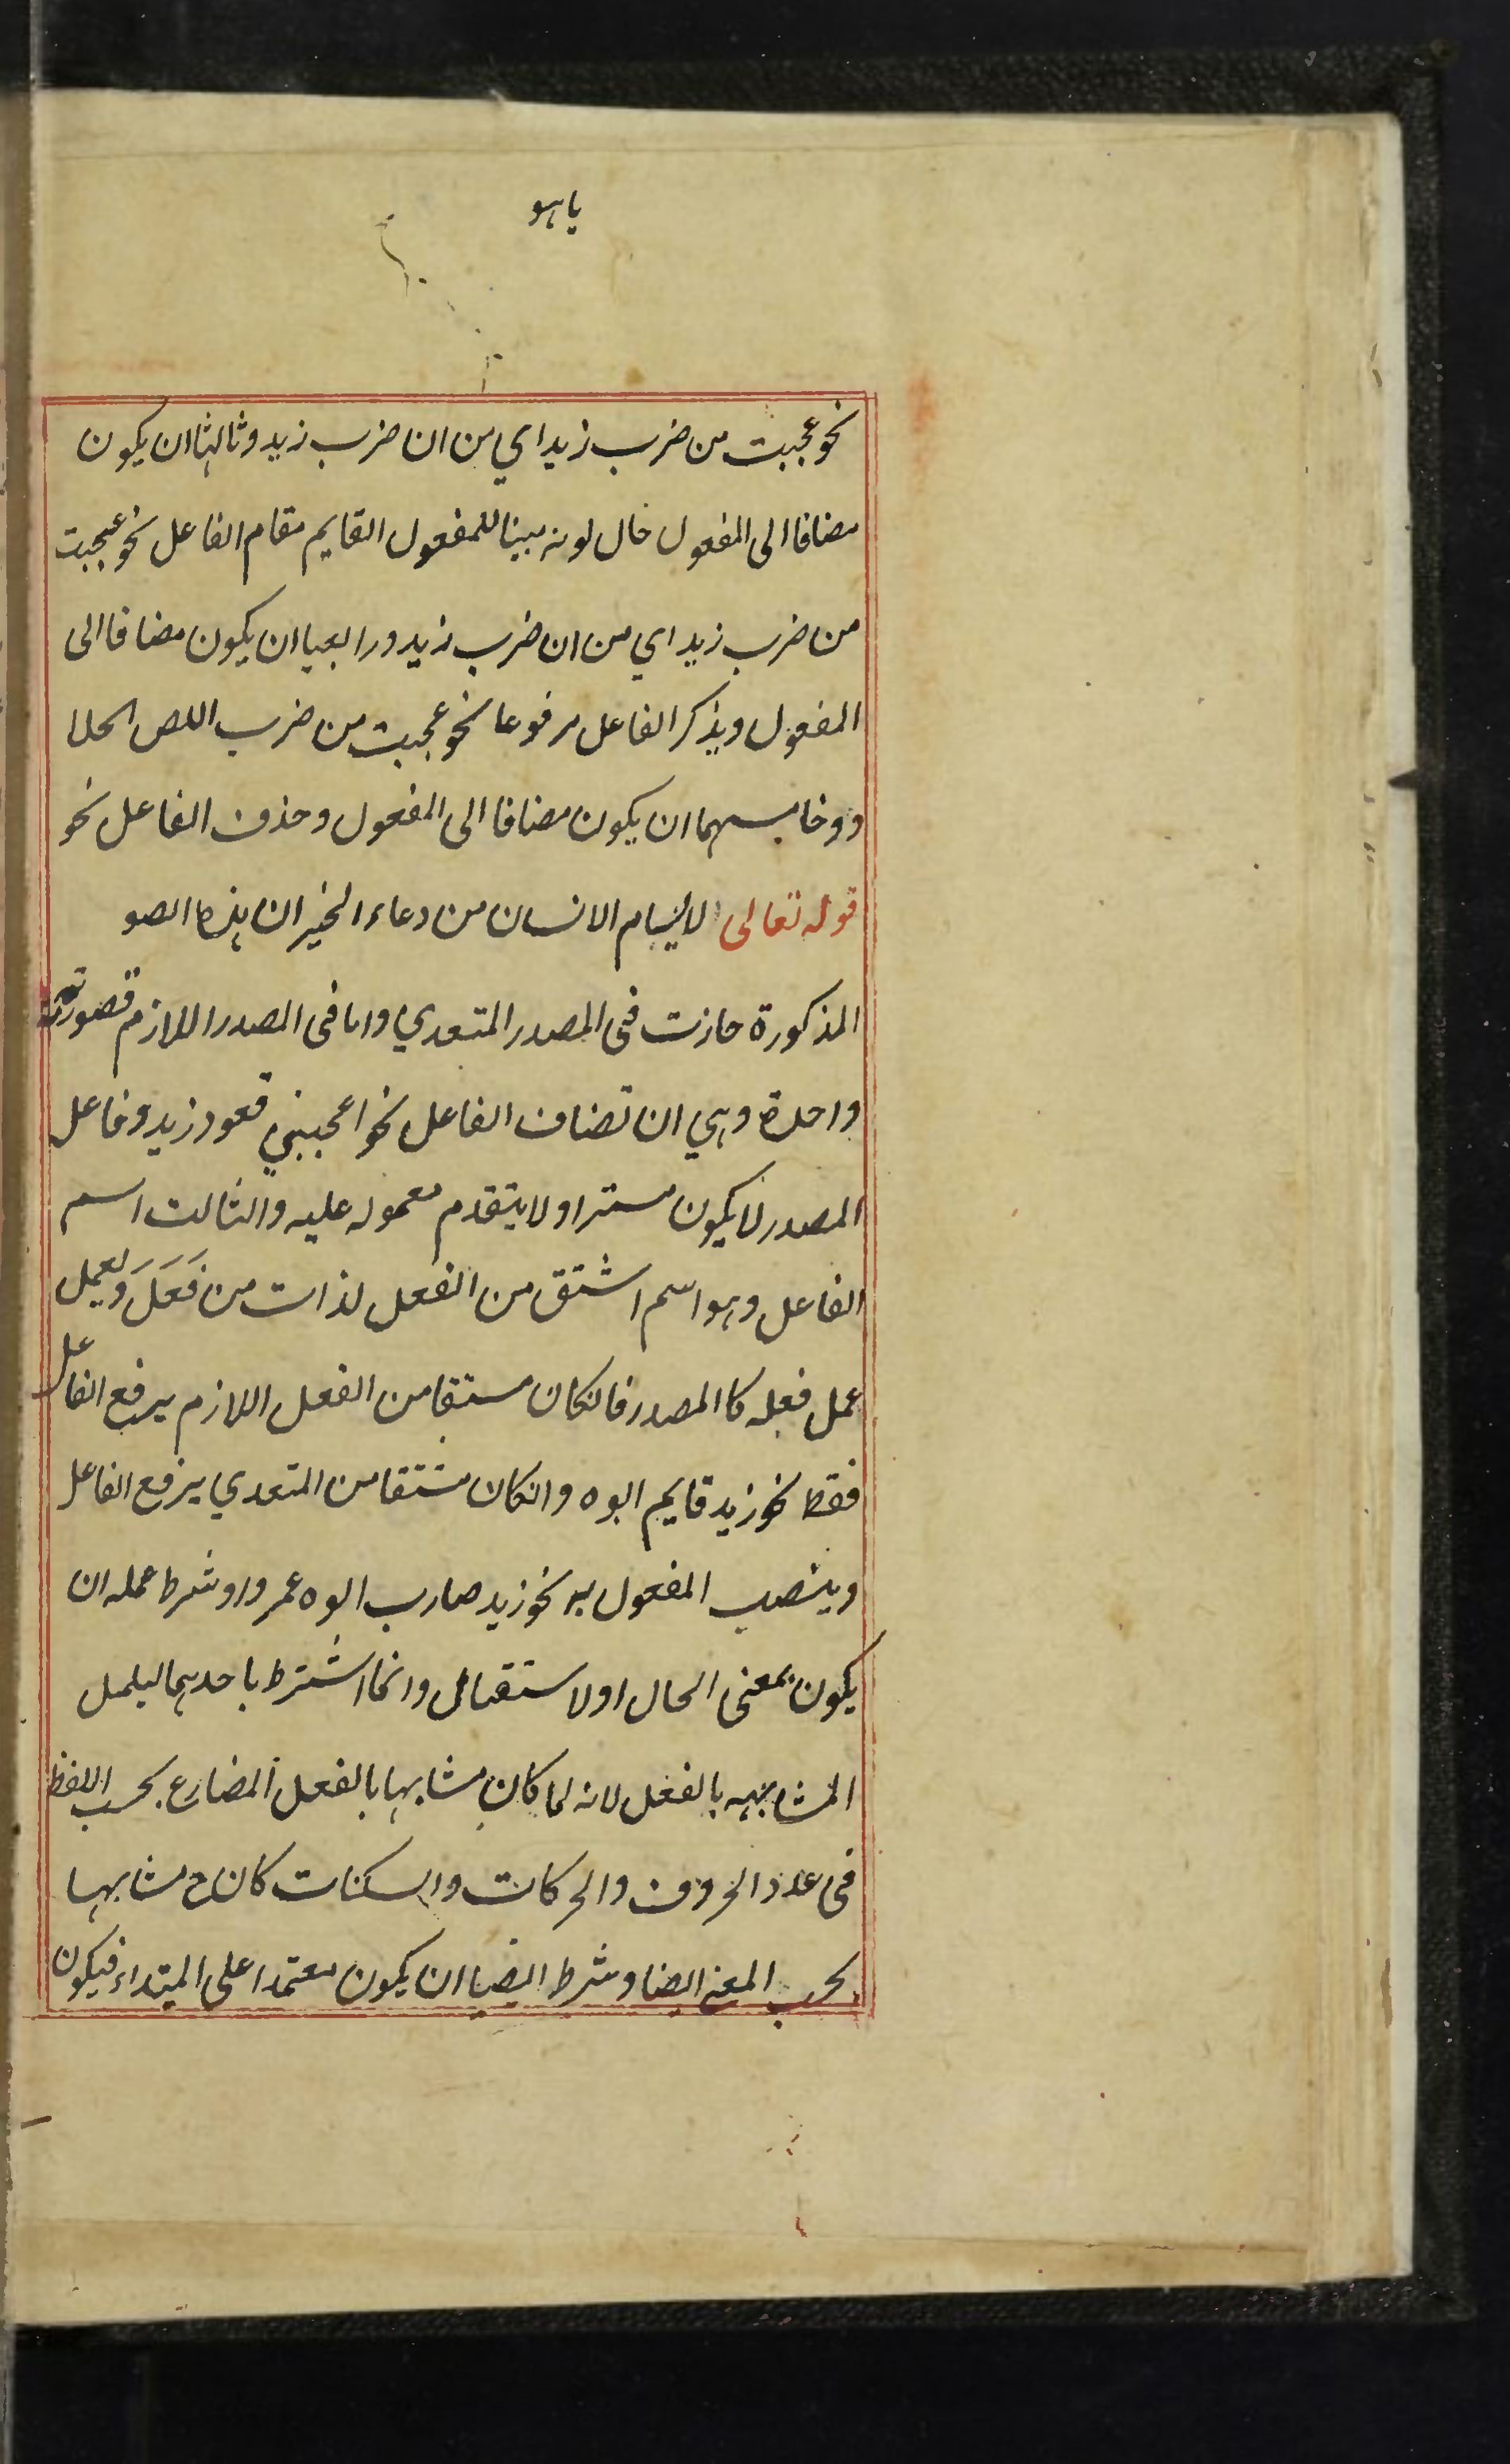 یاهو
نحو عجبت من ضرب زيد اي من ان ضرب زيد وثالثها ان يكون
مضافا الى المفعول حال كونه مبينا للمفعول القايم مقام الفاعل نحو عجبت
من ضرب زيد اي من ان ضرب زيد ورابعها ان يكون مضافا الى
المفعول ويذكر الفاعل مرفوعا نحو عجبت من ضرب اللص الجلا
د وخامسهما ان يكون مضافا الى المفعول وحذف الفاعل نحو
قوله تعالى لا يسام الانسان من دعاء الخير ان هذه الصو
المذكورة جازت فى المصدر المتعدي واما فى المصدر اللازم فصورته
واحدة وهي ان تضاف الفاعل نحو اعجبني قعود زيد وفاعل
المصدر لا يكون مستترا ولا يتقدم معموله عليه والثالث اسم
الفاعل وهو اسم اشتق من الفعل لذات من فَعَلَ ويعمل
عمل فعله كا المصدر فانكان مستقا من الفعل اللازم يرفع الفاعل
فقط نحو زيد قايم ابوه وانكان مشتقا من المتعدي يرفع الفاعل
وينصب المفعول به نحو زيد ضارب ابوه عمروا وشرط عمله ان
يكون بمعنى الحال او لاستقبال وانما اشترط باحدهما ليلمل
المشابهه بالفعل لانه لما كان مشابها بالفعل المضارع بحسب اللفظ
فى عدد الحروف والحركات والسكنات كان ح مشابها
بحسب المعنى ايضا وشرط ايضا ان يكون معتمدا على المبتداء فيكون